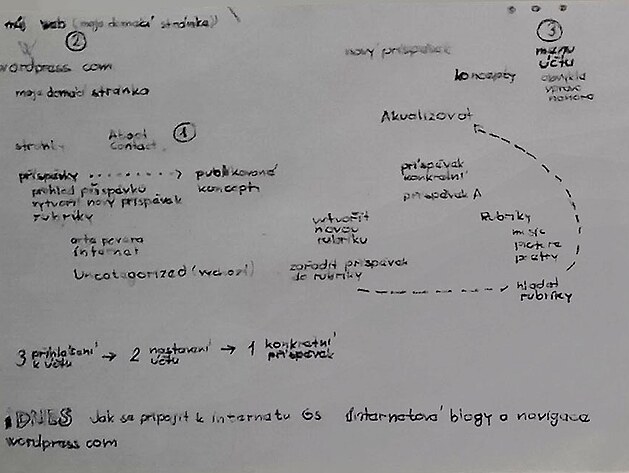 můj web (moje domácí stránka)
2
wordpress com
moje domácí stránka
3
menu
účtu
obvykle
vpravo
nahoře
nový příspěvek
koncepty
Akualizovat
1
About
Contact
stránky
příspěvky → publikované
koncepty
přehled příspěvků
vytvořit nový příspěvek
rubriky
arte povera
internet
Uncategorized (výchozí)
příspěvek
konkrétní
příspěvek A
vytvořit
novou
rubriku
zařadit příspěvek
do rubriky
Rubriky
moje
hledat
rubriky
3 přihlášení
k účtu → 2 nastavení
účtu → 1 konkrétní
příspěvek
iDNES Jak se připojit k internetu Gs Internetové blogy a navigace
wordpress com